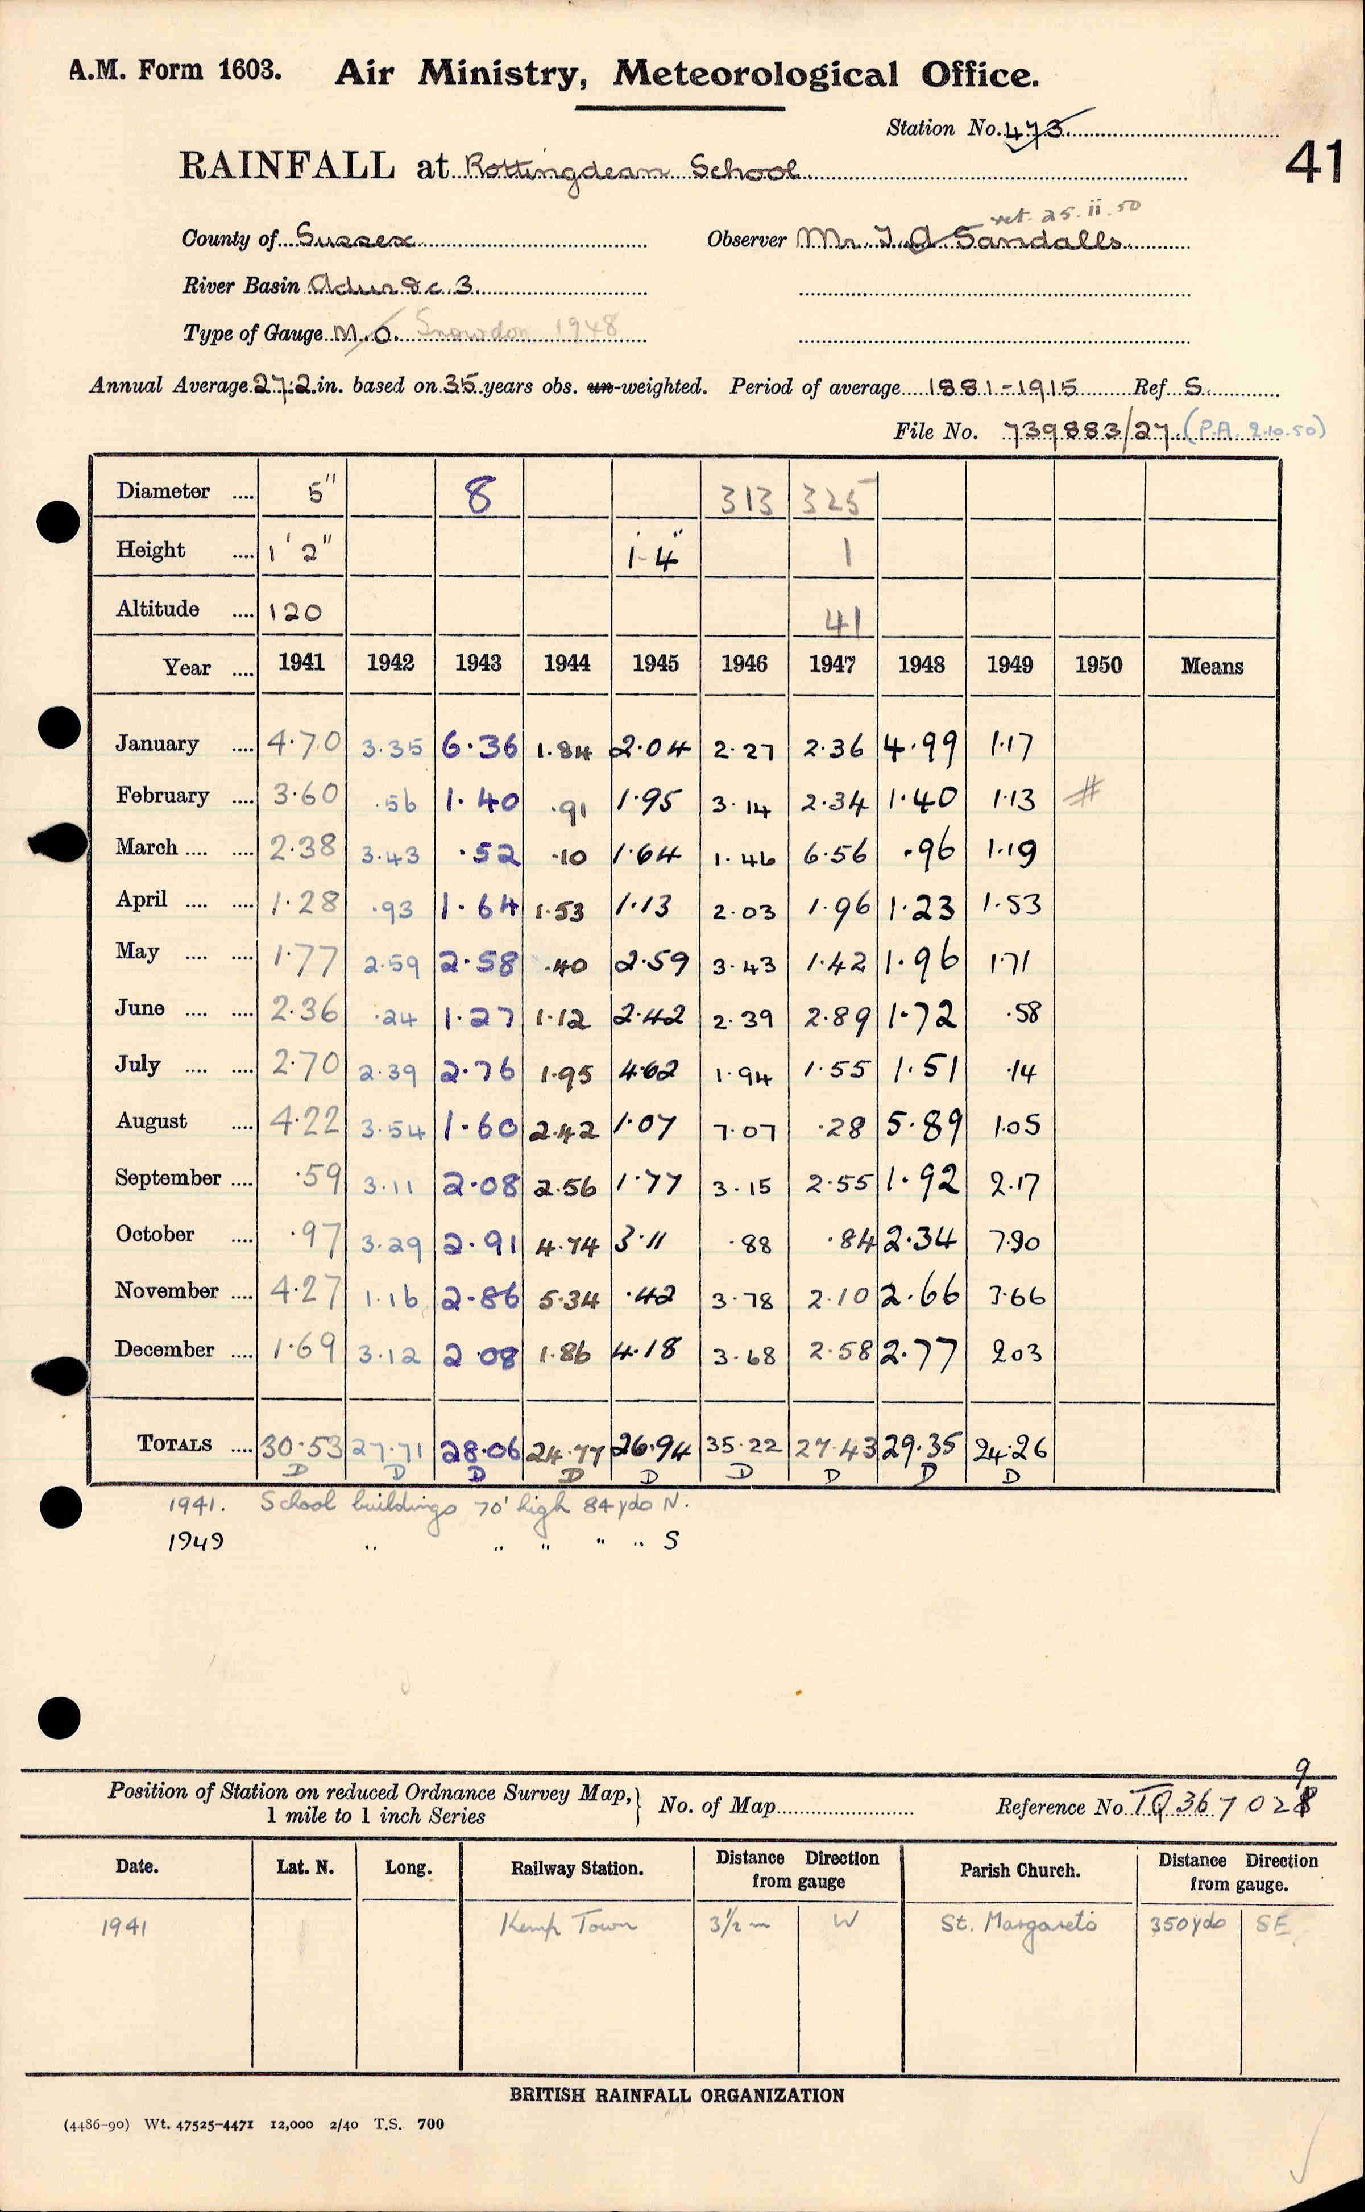 A.M. Form 1603. Air Ministry, Meteorological Office.
Station No. 473
41
RAINFALL at Rottingdean School
ret. 25.ii.50
County of Sussex Observer Mr. J. A. Sandalls
River Basin Adur &c 3.
Type of Gauge M.O. Snowdon 1948
Annual Average 27.2 in. based on 35 years obs. un-weighted. Period of average 1881-1915 Ref S.
File No. 739883/27 (P.A. 2.10.50)
Diameter .... 5" 8 313 325
Height .... 1' 2" 1'-4" 1
Altitude .... 120 41
Year .... 1941 1942 1943 1944 1945 1946 1947 1948 1949 1950 Means
January .... 4.70 3.35 6.36 1.84 2.04 2.27 2.36 4.99 1.17
February .... 3.60 .56 1.40 .91 1.95 3.14 2.34 1.40 1.13 #
March .... .... 2.38 3.43 .52 .10 1.64 1.46 6.56 .96 1.19
April .... .... 1.28 .93 1.64 1.53 1.13 2.03 1.96 1.23 1.53
May .... .... 1.77 2.59 2.58 .40 2.59 3.43 1.42 1.96 1.71
June .... .... 2.36 .24 1.27 1.12 2.42 2.39 2.89 1.72 .58
July .... .... 2.70 2.39 2.76 1.95 4.62 1.94 1.55 1.51 .14
August .... 4.22 3.54 1.60 2.42 1.07 7.07 .28 5.89 1.05
September .... .59 3.11 2.08 2.56 1.77 3.15 2.55 1.92 2.17
October .... .97 3.29 2.91 4.74 3.11 .88 .84 2.34 7.90
November .... 4.27 1.16 2.86 5.34 .42 3.78 2.10 2.66 3.66
December .... 1.69 3.12 2 08 1.86 4.18 3.68 2.58 2.77 2.03
TOTALS .... 30.53 27.71 28.06 24.77 26.94 35.22 27.43 29.35 24.26
D D D D D D D D D
1941. School buildings 70' high 84 yds N.
1949 " " " " " S
9
Position of Station on reduced Ordnance Survey Map, 1 mile to 1 inch Series } No. of Map Reference No. TQ 367 028
Date. Lat. N. Long. Railway Station. Distance Direction from gauge Parish Church. Distance Direction from gauge.
1941 Kemp Town 3½ m W St. Margarets 350 yds SE.
BRITISH RAINFALL ORGANIZATION
(4486-90) Wt. 47525-4471 12,000 2/40 T.S. 700